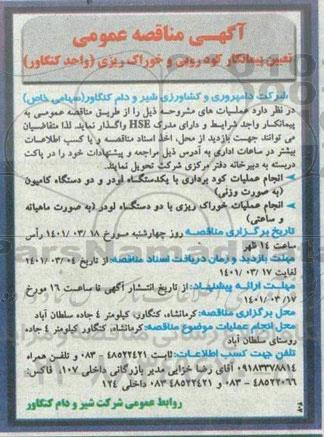 آگهی مناقصه عمومی
تعیین پیمانکار کود روبی و خوراک ریزی (واحد کنگاور)
شرکت دامپروری و کشاورزی شیر و دام کنگاور(سهامی خاص)
در نظر دارد عملیات های مشروحه ذیل را از طریق مناقصه عمومی به
پیمانکار واجد شرایط و دارای مدرک HSE واگذار نمایند. لذا متقاضیان
می توانند جهت بازدید از محل، اخذ اسناد مناقصه و یا کسب اطلاعات
بیشتر در ساعات اداری به آدرس ذیل مراجعه و پیشنهادات خود را در پاکت
دربسته به دبیرخانه دفتر مرکزی شرکت تحویل نمایند.
انجام عملیات کود برداری با یکدستگاه لودر و دو دستگاه کامیون
(به صورت وزنی)
انجام عملیات خوراک ریزی با دو دستگاه لودر (به صورت ماهیانه
و ساعتی)
تاریخ برگزاری مناقصه روز چهارشنبه مورخ ۱۴۰۱/۰۳/۱۸ رأس
ساعت ۱۴ ظهر
مهلت بازدید و زمان دریافت اسناد مناقصه: از تاریخ ۱۴۰۱/۰۳/۰۴
لغایت ۱۴۰۱/۰۳/۱۷
مهلت ارائه پیشنهاد: از تاریخ انتشار آگهی تا ساعت ۱۶ مورخ
۱۴۰۱/۰۳/۱۷
محل برگزاری مناقصه: کرمانشاه، کنگاور، کیلومتر ۴ جاده سلطان آباد
محل انجام عملیات موضوع مناقصه: کرمانشاه، کنگاور، کیلومتر ۴ جاده
روستای سلطان آباد
تلفن جهت کسب اطلاعات: ثابت ۴۸۵۲۲۴۲۱ - ۰۸۳ و تلفن همراه
۰۹۱۸۳۳۷۸۸۱۴ آقای رضا خزایی مدیر بازرگانی داخلی ۱۰۷، فاکس:
۴۸۵۲۲۰۶۶ - ۰۸۳ و ۴۸۵۲۲۴۲۱ - ۰۸۳ داخلی ۱۲۴
روابط عمومی شرکت شیر و دام کنگاور